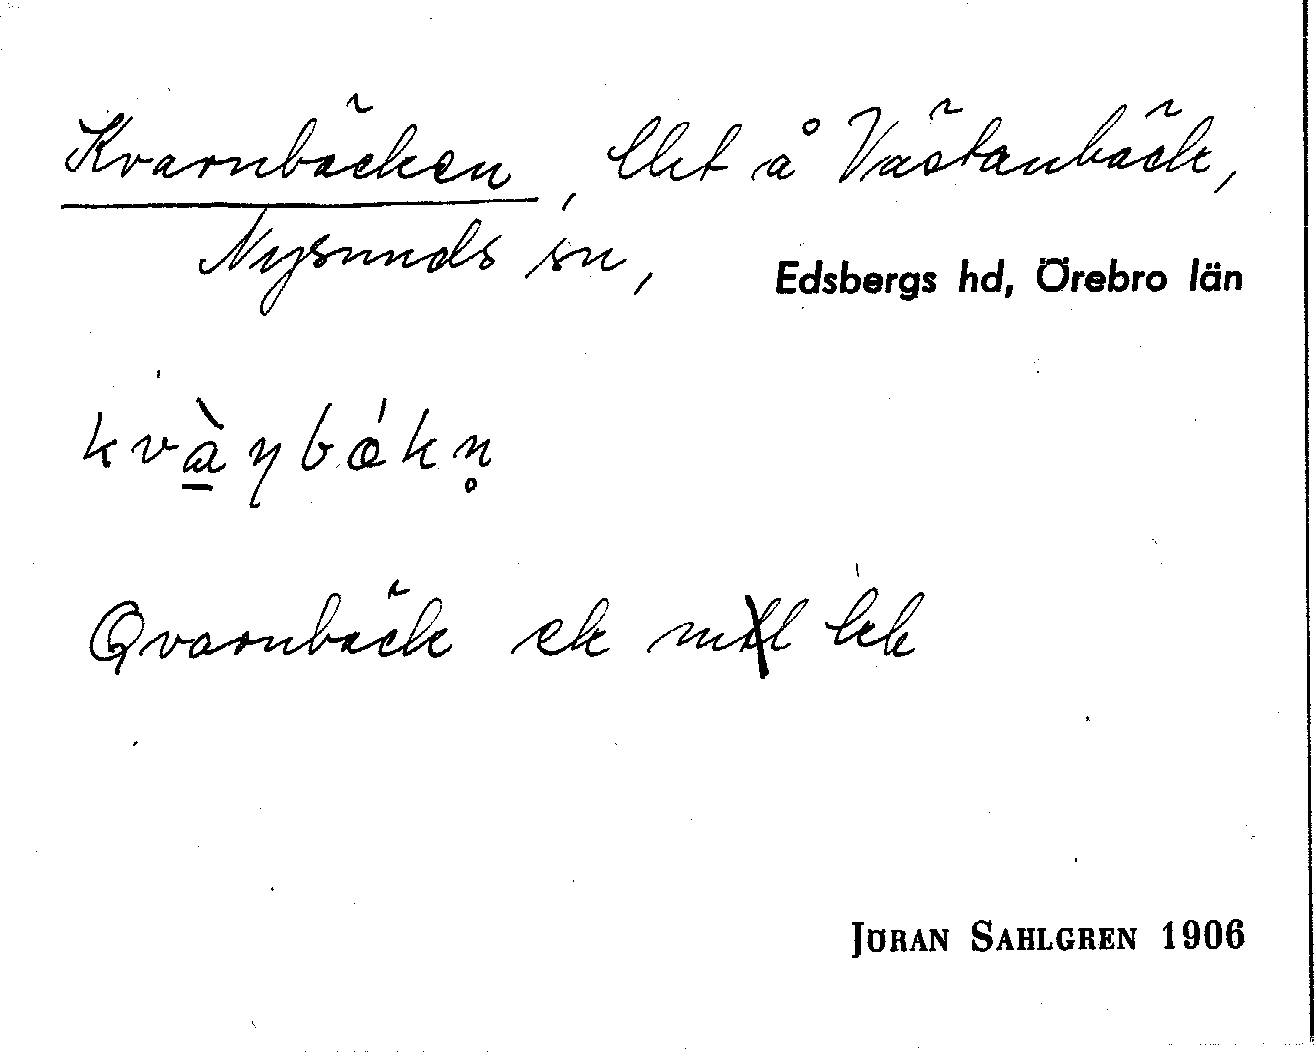 Kvarnbäcken, lht å Västanbäck,
Nysunds sn, Edsbergs hd, Örebro län
kvàɳbǽkn̥
Qvarnbäck ek
JÖRAN SAHLGREN 1906